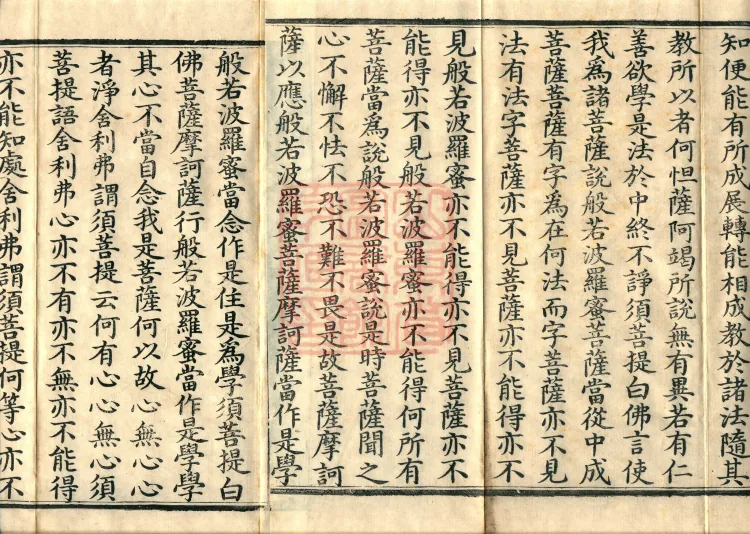 知便能有所成展轉能相成教於諸法隨其
教所以者何怛薩阿竭所說無有異若有仁
善欲學是法於中終不諍須菩提白佛言使
我為諸菩薩說般若波羅蜜菩薩當從中成
菩薩菩薩有字為在何法而字菩薩亦不見
法有法字菩薩亦不見菩薩亦不能得亦不
見般若波羅蜜亦不能得亦不見菩薩亦不
能得亦不見般若波羅蜜亦不能得何所有
菩薩當為說般若波羅蜜說是時菩薩聞之
心不懈不怯不恐不難不畏是故菩薩摩訶
薩以應般若波羅蜜菩薩摩訶薩當作是學
般若波羅蜜當念作是住是為學須菩提白
佛菩薩摩訶薩行般若波羅蜜當作是學學
其心不當自念我是菩薩何以故心無心心
者淨舍利弗謂須菩提云何有心心無心須
菩提語舍利弗心亦不有亦不無亦不能得
亦不能知處舍利弗謂須菩提何等心亦不